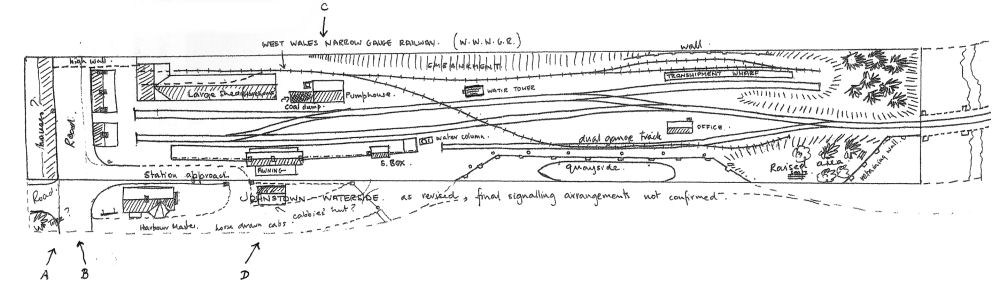 C
WEST WALES NARROW GAUGE RAILWAY. (W.W.N.G.R.)
wall
high wall
EMBANKMENT
TRANSHIPMENT WHARF
Large Shed
Pumphouse.
WATER TOWER
Coal dump.
houses?
Road.
OFFICE.
water column.
dual gauge track
S. BOX
quayside
Raised area
retaining wall
AWNING
Station approach
JOHNSTOWN — WATERSIDE. as revised, final signalling arrangements not confirmed.
Road
cabbies' hut?
Harbour Master.
horse drawn cabs.
A
B
D